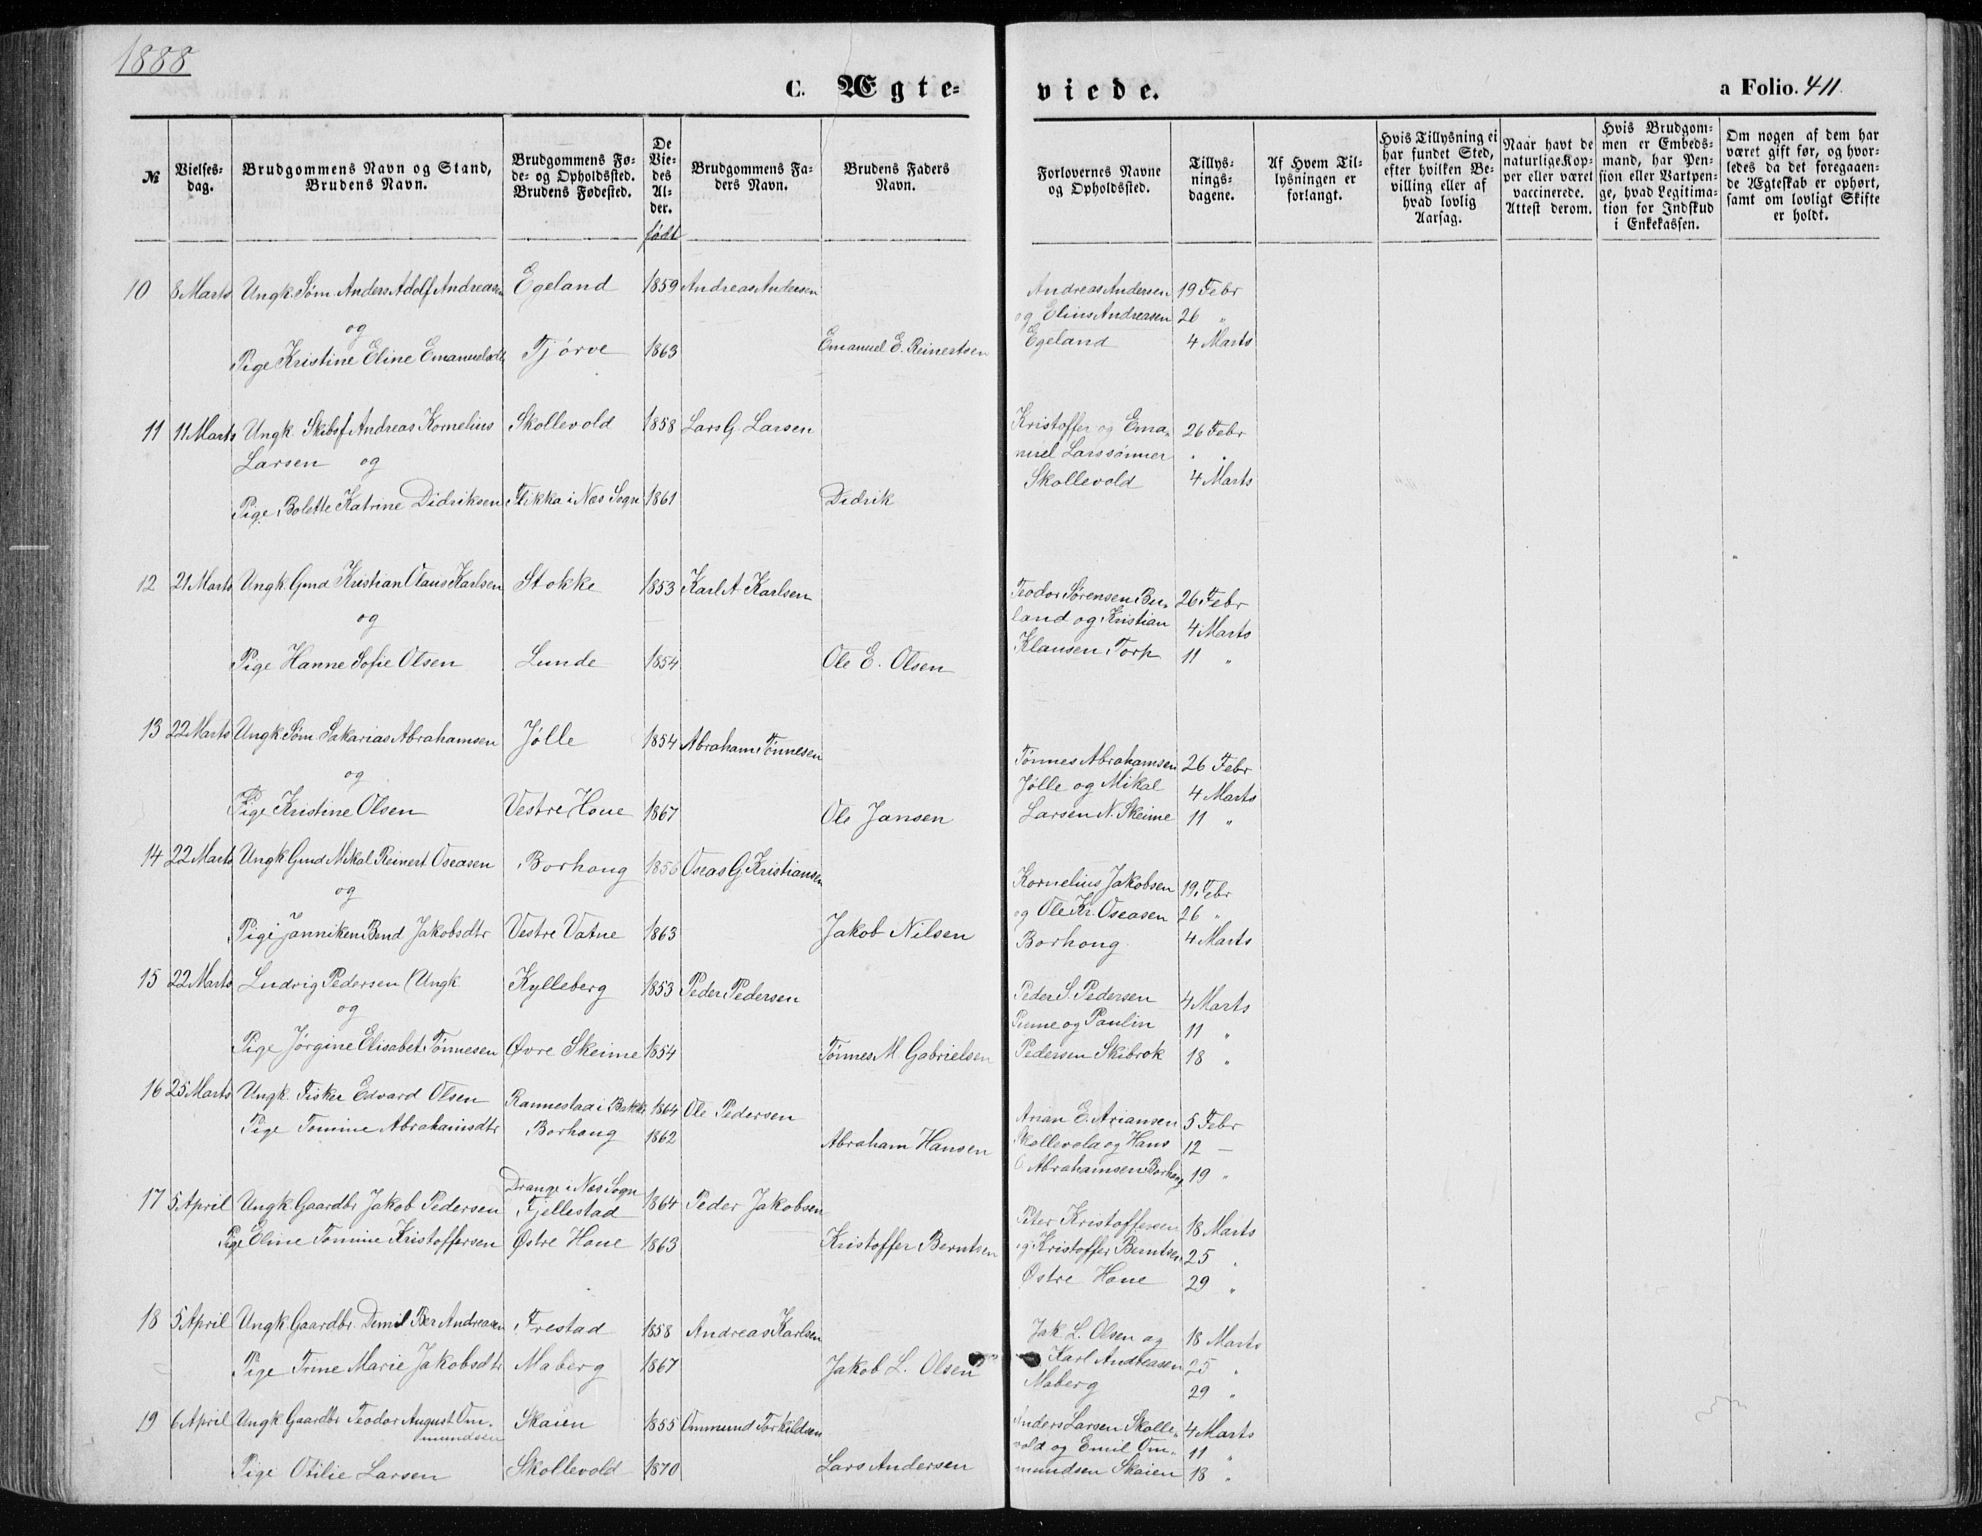 1888
C. Ægte=
viede.
a Folio. 411.
№
Vielses-
dag.
Brudgommens Navn og Stand,
Brudens Navn.
Brudgommens Fø-
de- og Opholdssted.
Brudens Fødested.
De
Vie-
des
Al-
der.
født
Brudgommens Fa-
ders Navn.
Brudens Faders
Navn.
Forlovernes Navne
og Opholdssted.
Tillys-
nings-
dagene.
Af Hvem Til-
lysningen er
forlangt.
Hvis Tillysning ei
har fundet Sted,
efter hvilken Be-
villing eller af
hvad lovlig
Aarsag.
Naar havt de
naturlige Kop-
per eller været
vaccinerede.
Attest derom.
Hvis Brudgom-
men er Embeds-
mand, har Pen-
sion eller Vartpen-
ge, hvad Legitima-
tion for Indskud
i Enkekassen.
Om nogen af dem har
været gift før, og hvor-
ledes da det foregaaen-
de Ægteskab er ophørt,
samt om lovligt Skifte
er holdt.
10 8 Marts Ungk. Søm Anders Adolf Andreasen Egeland 1859 Andreas Andersen Andreas Andersen 19 Febr
og og Elius Andreasen 26 "
Pige Kristine Eline Emanuelsdtr Tjørve 1863 Emanuel E. Reinertsen Egeland 4 Marts
11 11 Marts Ungk. Skibsf Andreas Kornelius Skollevold 1858 Lars G. Larsen Kristoffer og Ema- 26 Febr
Larsen og nuel Larssønner
Pige Bolette Katrine Didriksen Flikka i Nes Sogn 1861 Didrik Skollevold 4 Marts
12 21 Marts Ungk Gmd Kristian Olaus Karlsen Stokke 1853 Karl A Karlsen Teodor Sørensen Bu- 26 Febr
og land og Kristian 4 Marts
Pige Hanne Sofie Olsen Lunde 1854 Ole E. Olsen Klausen Torp 11 "
13 22 Marts Ungk Søm Sakarias Abrahamsen Jølle 1854 Abraham Tønnesen Tønnes Abrahamsen 26 Febr
og Jølle og Mikal 4 Marts
Pige Kristine Olsen Vestre Hone 1867 Ole Jansen Larsen N. Skeime 11 "
14 22 Marts Ungk Gmd Mikal Reinert Oseasen Borhong 1856 Oseas G Kristiansen Kornelius Jakobsen 19 Febr
og og Ole Kr. Oseasen 26 "
Pige Janniken Bend Jakobsdtr Vestre Vatne 1863 Jakob Nilsen Borhong 4 Marts
15 22 Marts Ludvig Pedersen (Ungk Kylleberg 1853 Peder Pedersen Peder S. Pedersen 4 Marts
og og Paulin 11 "
Pige Jørgine Elisabet Tønnesen Øvre Skeime 1854 Tønnes M Gabrielsen Pedersen Skibrok 18 "
16 25 Marts Ungk. Fisker Edvard Olsen Rannestad i Bakke 1864 Ole Pedersen Anan E. Ariansen 5 Febr
Pige Tomine Abrahamsdtr Borhong 1862 Abraham Hansen Skollevola og Hans 12 —
Abrahamsen Borhong 19 "
Drange i Nes Sogn
17 5 April Ungk Gaardbr Jakob Pedersen Fjellestad 1864 Peder Jakobsen Peter Kristoffersen 18 Marts
Pige Eline Tomine Kristoffersen Østre Hone 1863 Kristoffer Berntsen og Kristoffer Berntsen 25 "
Østre Hone 29 "
18 5 April Ungk Gaardbr. Demil Ber Andreasen Frestad 1858 Andreas Karlsen Jak L. Olsen og 18 Marts
Pige Trine Marie Jakobsdtr Maberg 1867 Jakob L. Olsen Karl Andreasen 25 "
Maberg 29 "
19 6 April Ungk Gaardbr Teodor August Om- Skaien 1855 Ommund Torkildsen Anders Larsen Skolle- 4 Marts
mundsen vold og Emil Om- 11 "
Pige Otilie Larsen Skollevold 1870 Lars Andersen mundsen Skaien 18 "